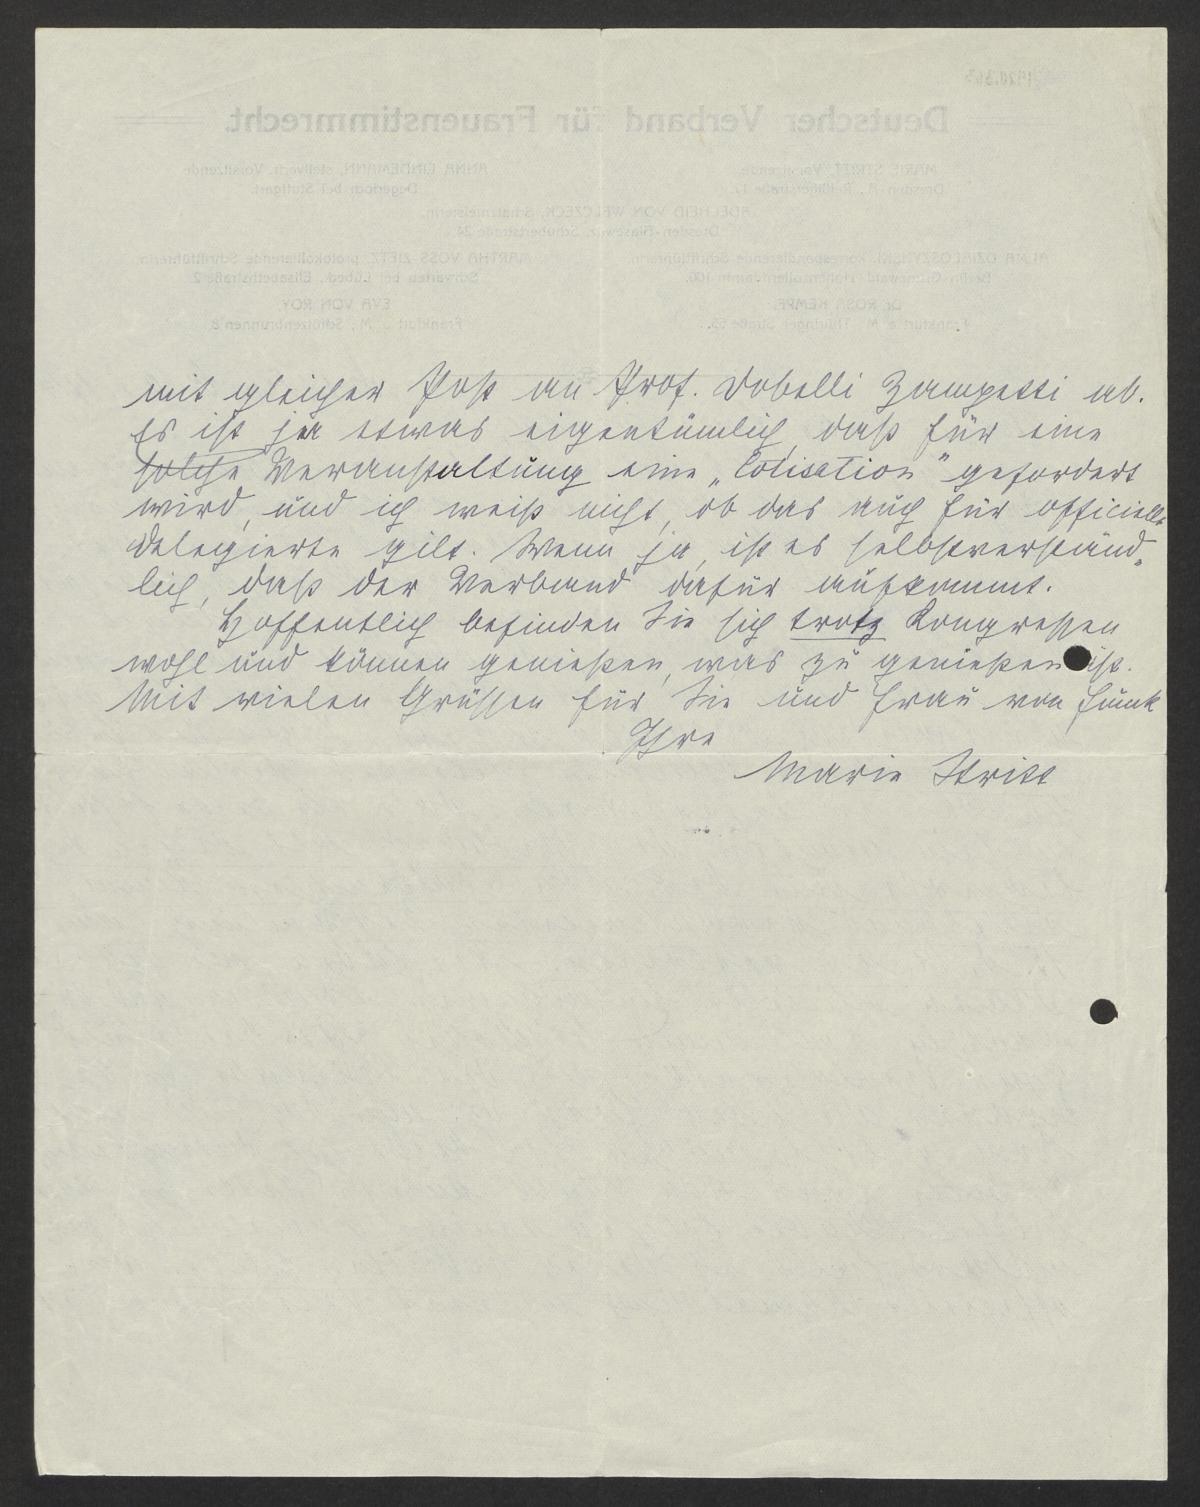 mit gleicher Post an Prof. Dobelli Zampetti ab.
Es ist ja etwas eigentümlich, daß für eine
solche Veranstaltung eine „Cotisation" gefordert
wird, und ich weiß nicht, ob das auch für officielle
Delegierte gilt. Wenn ja, ist es selbstverständ„
lich, daß der Verband dafür aufkommt.
Hoffentlich befinden Sie sich trotz Kongressen
wohl und können genießen, was zu genießen ist.
Mit vielen Grüssen für Sie und Frau von Funk
Ihre
Marie Stritt